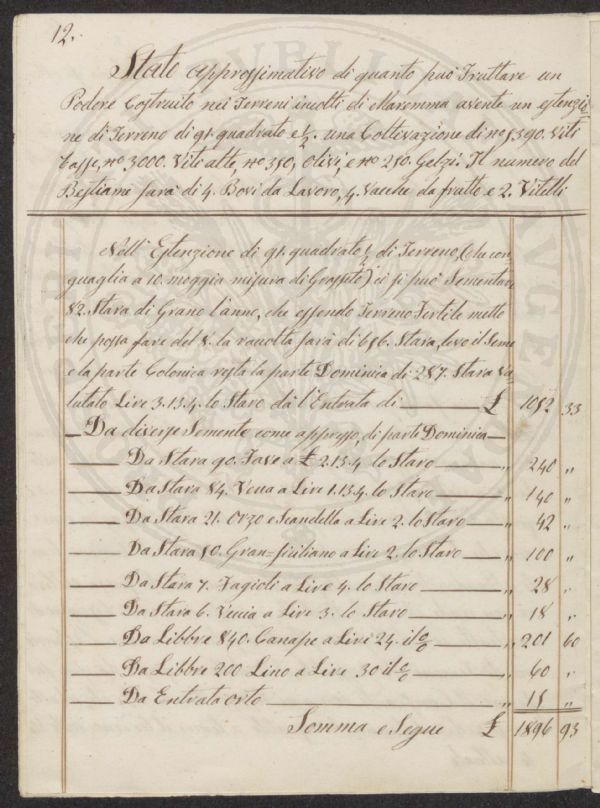 12.
Stato approssimativo di quanto può Fruttare un
Podere Costruito nei Terreni incolti di Maremma avente un estenzio
ne di Terreno di 91. quadrato e ½. una Coltivazione di nº 5390. Viti
basse, nº 3000. Viti alte, nº 350, Olivi, e nº 250. Gelzi. Il numero del
Bestiame sarà di 4. Bovi da Lavoro, 4. Vacche da frutto e 2. Vitelli
Nell' Estenzione di 91. quadrato ½ di Terreno, (che con
guaglia a 10. moggia misura di Grosseto) ci si può Sementare
82. Stara di Grano l'anno, che essendo Terreno Fertile metto
che possa fare del 8. la raccolta sarà di 656. Stara, levo il Seme
e la parte Colonica resta la parte Dominica di 287. Stara va-
lutato Lire 3.13.4. lo Staro dà l'Entrata di £ 1052 33
Da diverse Semente come appresso, di parte Dominica
Da Stara 90. Fave a £ 2.13.4 lo Staro " 240 "
Da Stara 84. Vena a Lire 1.13.4. lo Staro " 140 "
Da Stara 21. Orzo e Scandella a Lire 2. lo Staro " 42 "
Da Stara 50. Gran=siciliano a Live 2. lo Staro " 100 "
Da Stara 7. Fagioli a Lire 4. lo Staro " 28 "
Da Stara 6. Veccia a Lire 3. lo Staro " 18 "
Da Libbre 840. Canape a Lire 24. il % " 201 60
Da Libbre 200 Lino a Lire 30 il % " 60 "
Da Entrata orto " 15 "
Somma e Segue £ 1896 93